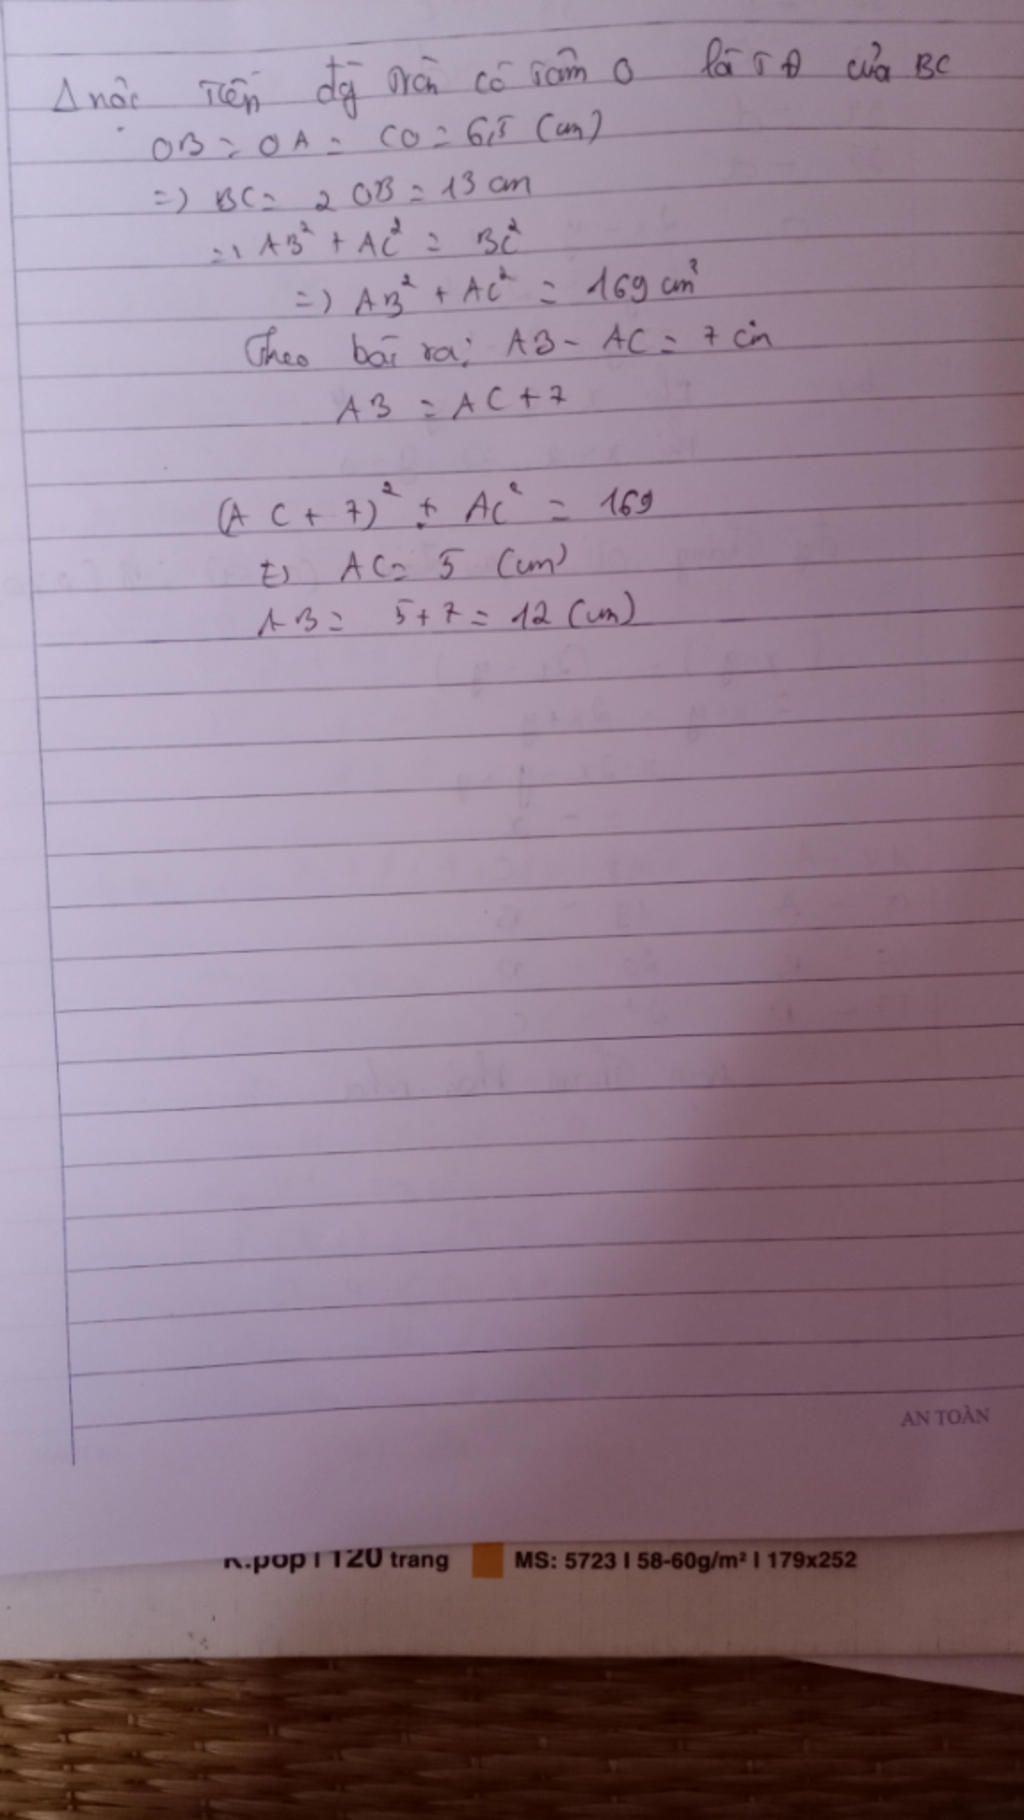 Δ nội tiến đg tròn có tâm O là TĐ của BC
OB = OA = CO = 6,5 (cm)
=) BC = 2 OB = 13 cm
=) AB² + AC² = BC²
=) AB² + AC² = 169 cm²
Theo bài ra: AB - AC = 7 cm
AB = AC + 7
(AC + 7)² + AC² = 169
AC = 5 (cm)
AB = 5 + 7 = 12 (cm)
AN TOÀN
K.pop I 120 trang MS: 5723 I 58-60g/m² I 179x252